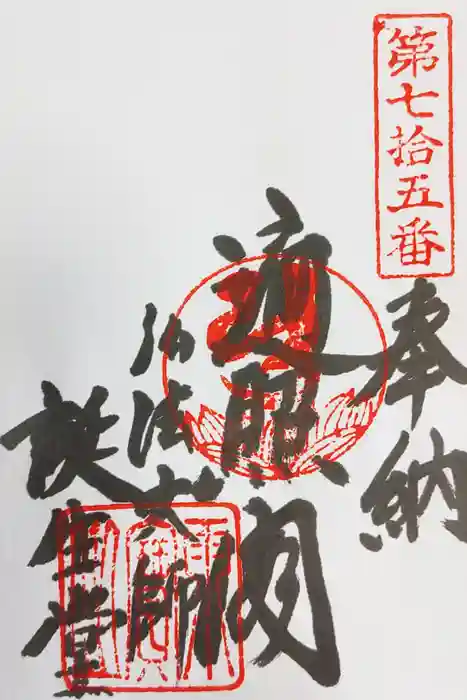 第七拾五番
奉納
遍照閣
弘法大師
誕生堂